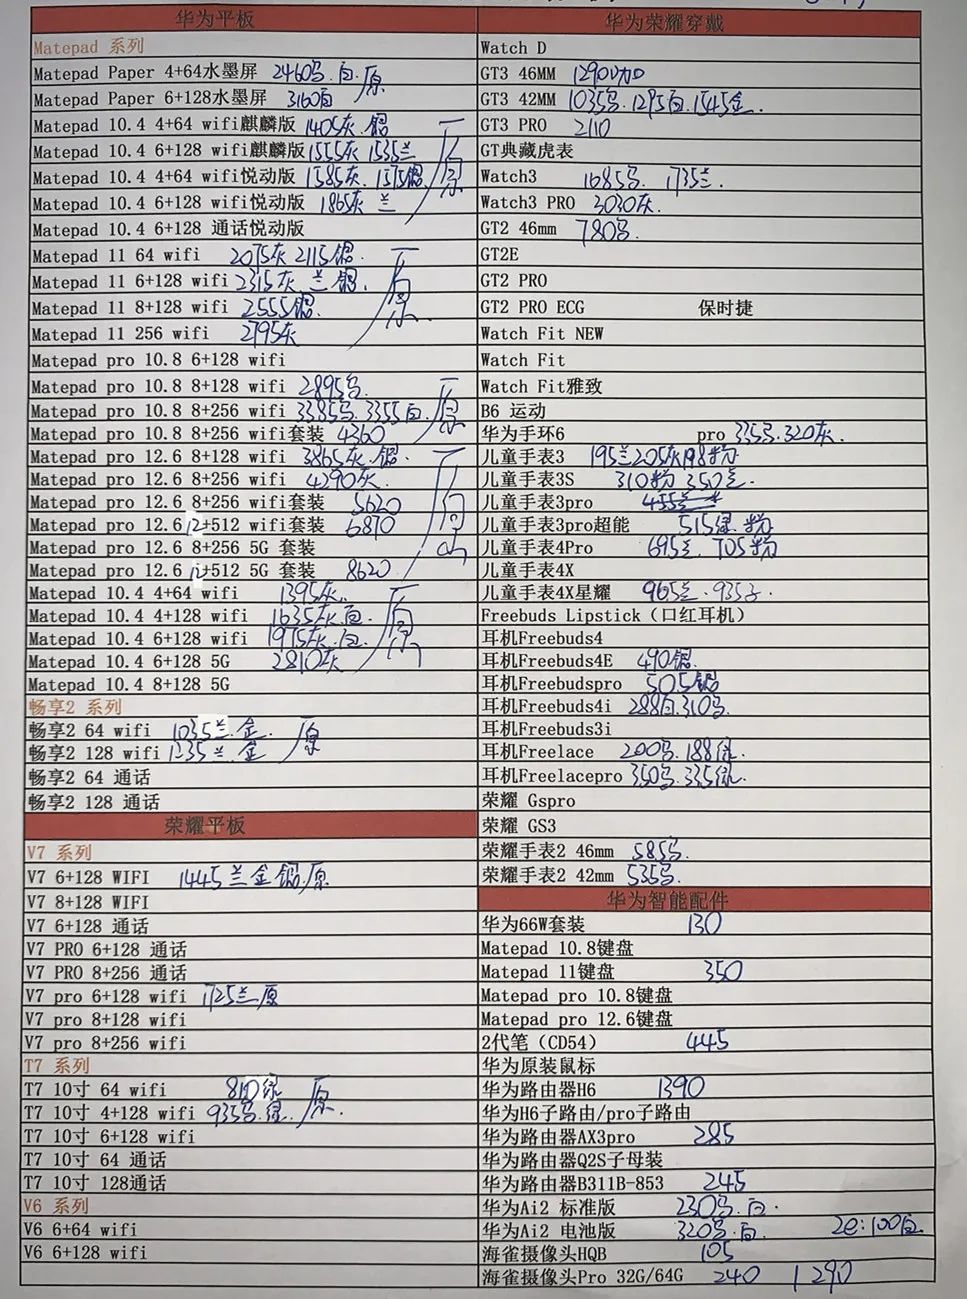 华为平板
Matepad 系列
Matepad Paper 4+64水墨屏 2460 白 原
Matepad Paper 6+128水墨屏 3160
Matepad 10.4 4+64 wifi麒麟版 1405灰 银
Matepad 10.4 6+128 wifi麒麟版 1555灰 1535兰
Matepad 10.4 4+64 wifi悦动版 1585灰 1575银
原
Matepad 10.4 6+128 wifi悦动版 1865灰 兰
Matepad 10.4 6+128 通话悦动版
Matepad 11 64 wifi 2075灰 2115银
Matepad 11 6+128 wifi 2315灰 兰 银
原
Matepad 11 8+128 wifi 2555银
Matepad 11 256 wifi 2795灰
Matepad pro 10.8 6+128 wifi
Matepad pro 10.8 8+128 wifi 2895
Matepad pro 10.8 8+256 wifi 3385 3355白 原
Matepad pro 10.8 8+256 wifi套装 4360
Matepad pro 12.6 8+128 wifi 3865灰 银
Matepad pro 12.6 8+256 wifi 4290灰
Matepad pro 12.6 8+256 wifi套装 5620
Matepad pro 12.6 12+512 wifi套装 6870
Matepad pro 12.6 8+256 5G 套装
Matepad pro 12.6 12+512 5G 套装 8620
Matepad 10.4 4+64 wifi 1395灰
Matepad 10.4 4+128 wifi 1635灰 白
原
Matepad 10.4 6+128 wifi 1975灰 白
Matepad 10.4 6+128 5G 2810灰
Matepad 10.4 8+128 5G
畅享2 系列
畅享2 64 wifi 1035兰 金 原
畅享2 128 wifi 1235兰 金
畅享2 64 通话
畅享2 128 通话
荣耀平板
V7 系列
V7 6+128 WIFI 1445兰 金 银 原
V7 8+128 WIFI
V7 6+128 通话
V7 PRO 6+128 通话
V7 PRO 8+256 通话
V7 pro 6+128 wifi 1725兰 原
V7 pro 8+128 wifi
V7 pro 8+256 wifi
T7 系列
T7 10寸 64 wifi 810 原
T7 10寸 4+128 wifi 935
T7 10寸 6+128 wifi
T7 10寸 64 通话
T7 10寸 128通话
V6 系列
V6 6+64 wifi
V6 6+128 wifi
华为荣耀穿戴
Watch D
GT3 46MM 1290
GT3 42MM 1035 1295白 1545金
GT3 PRO 2110
GT典藏虎表
Watch3 1685 1735兰
Watch3 PRO 3030灰
GT2 46mm 780
GT2E
GT2 PRO
GT2 PRO ECG 保时捷
Watch Fit NEW
Watch Fit
Watch Fit雅致
B6 运动
华为手环6 pro 335 320灰
儿童手表3 195兰 205灰 198粉
儿童手表3S 310粉 350兰
儿童手表3pro 455兰
儿童手表3pro超能 515绿 粉
儿童手表4Pro 695兰 705粉
儿童手表4X
儿童手表4X星耀 965兰 935
Freebuds Lipstick（口红耳机）
耳机Freebuds4
耳机Freebuds4E 490银
耳机Freebudspro 505银
耳机Freebuds4i 288白 310
耳机Freebuds3i
耳机Freelace 200 188绿
耳机Freelacepro 350 335绿
荣耀 Gspro
荣耀 GS3
荣耀手表2 46mm 585
荣耀手表2 42mm 535
华为智能配件
华为66W套装 130
Matepad 10.8键盘
Matepad 11键盘 350
Matepad pro 10.8键盘
Matepad pro 12.6键盘
2代笔（CD54） 445
华为原装鼠标
华为路由器H6 1390
华为H6子路由/pro子路由
华为路由器AX3pro 285
华为路由器Q2S子母装
华为路由器B311B-853 245
华为Ai2 标准版 230 白
华为Ai2 电池版 320 白 2e:100白
海雀摄像头HQB 105
海雀摄像头Pro 32G/64G 240 1290